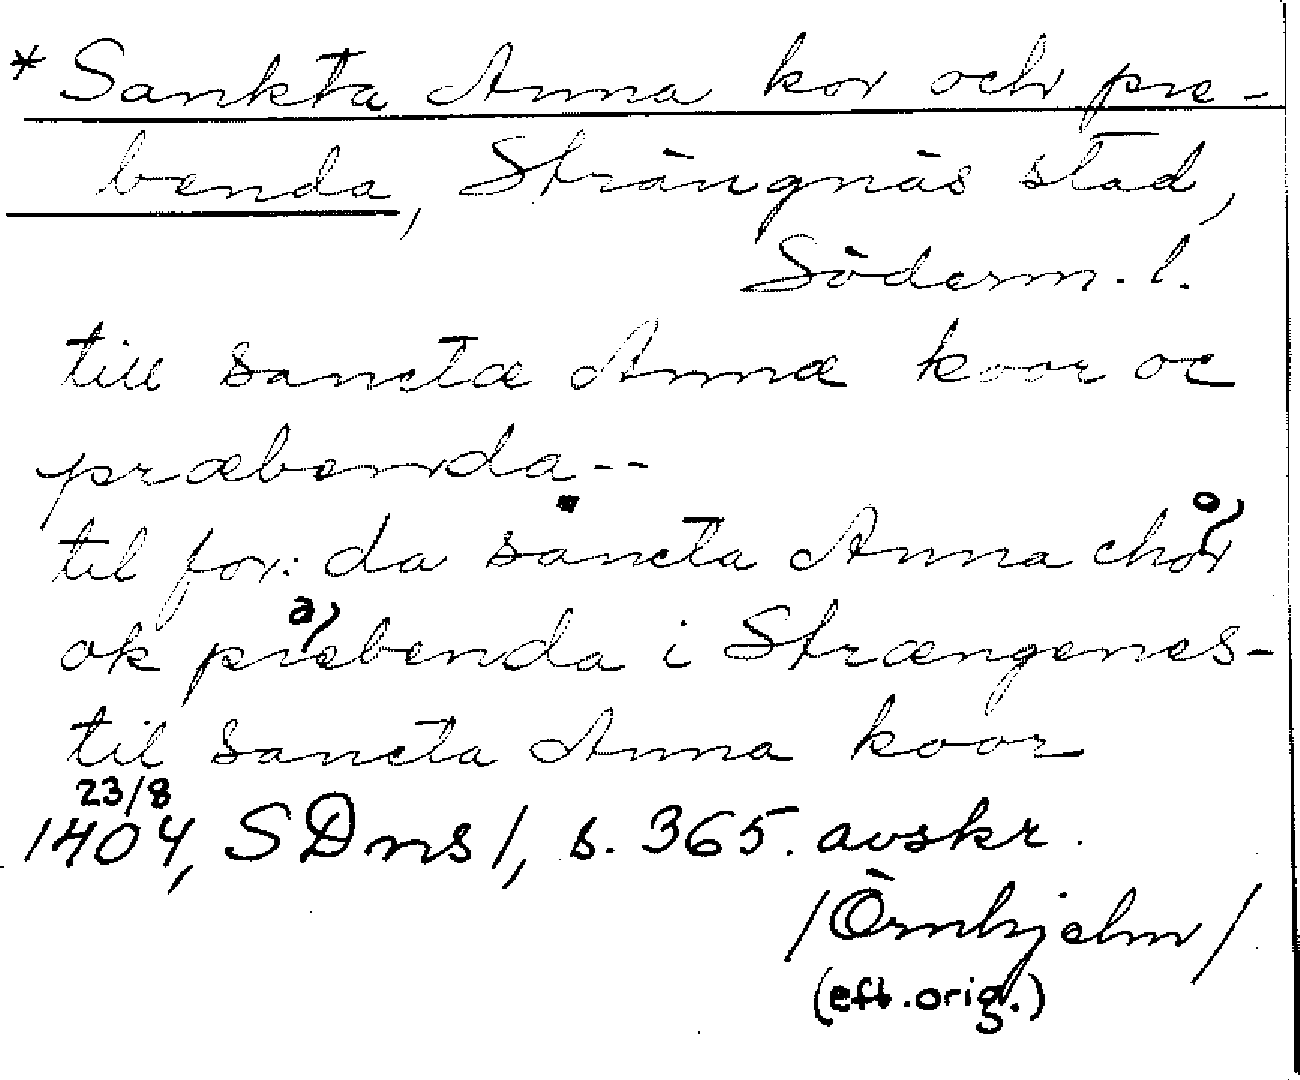 * Sankta Anna kor och pre-
benda, Strängnäs stad,
Söderm. l.
till sanctæ Annæ koor oc
præbenda--
til for: da sancta Anna chor
ok præbenda i Strængenes-
til sancta Anna koor
23/8
1404, SDns 1, s. 365. avskr.
/Örnhjelm/
(eft. orig.)